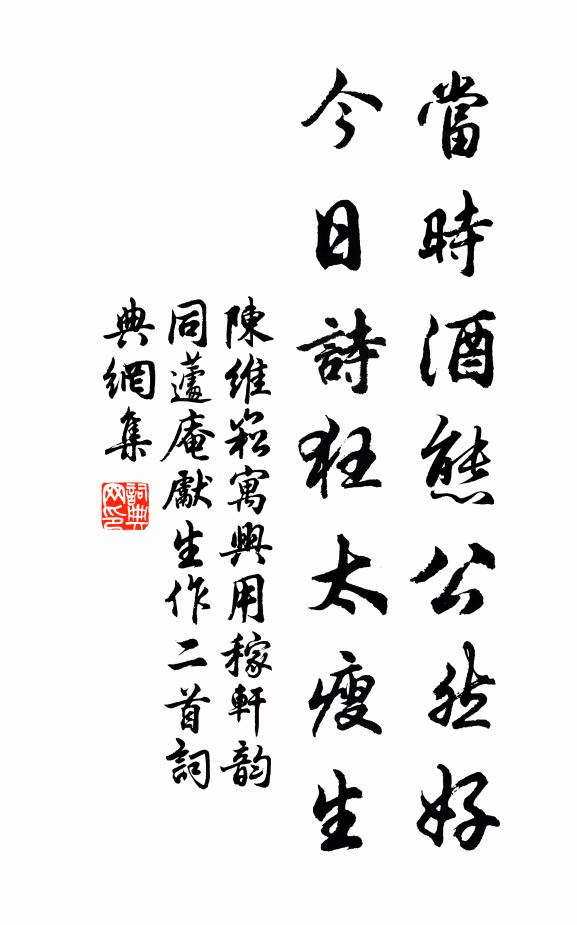 當時酒態公然好
今日詩狂太瘦生
陳維崧寓興用稼軒韵
同蘧庵獻生作二首詞
典網集
詞典網印